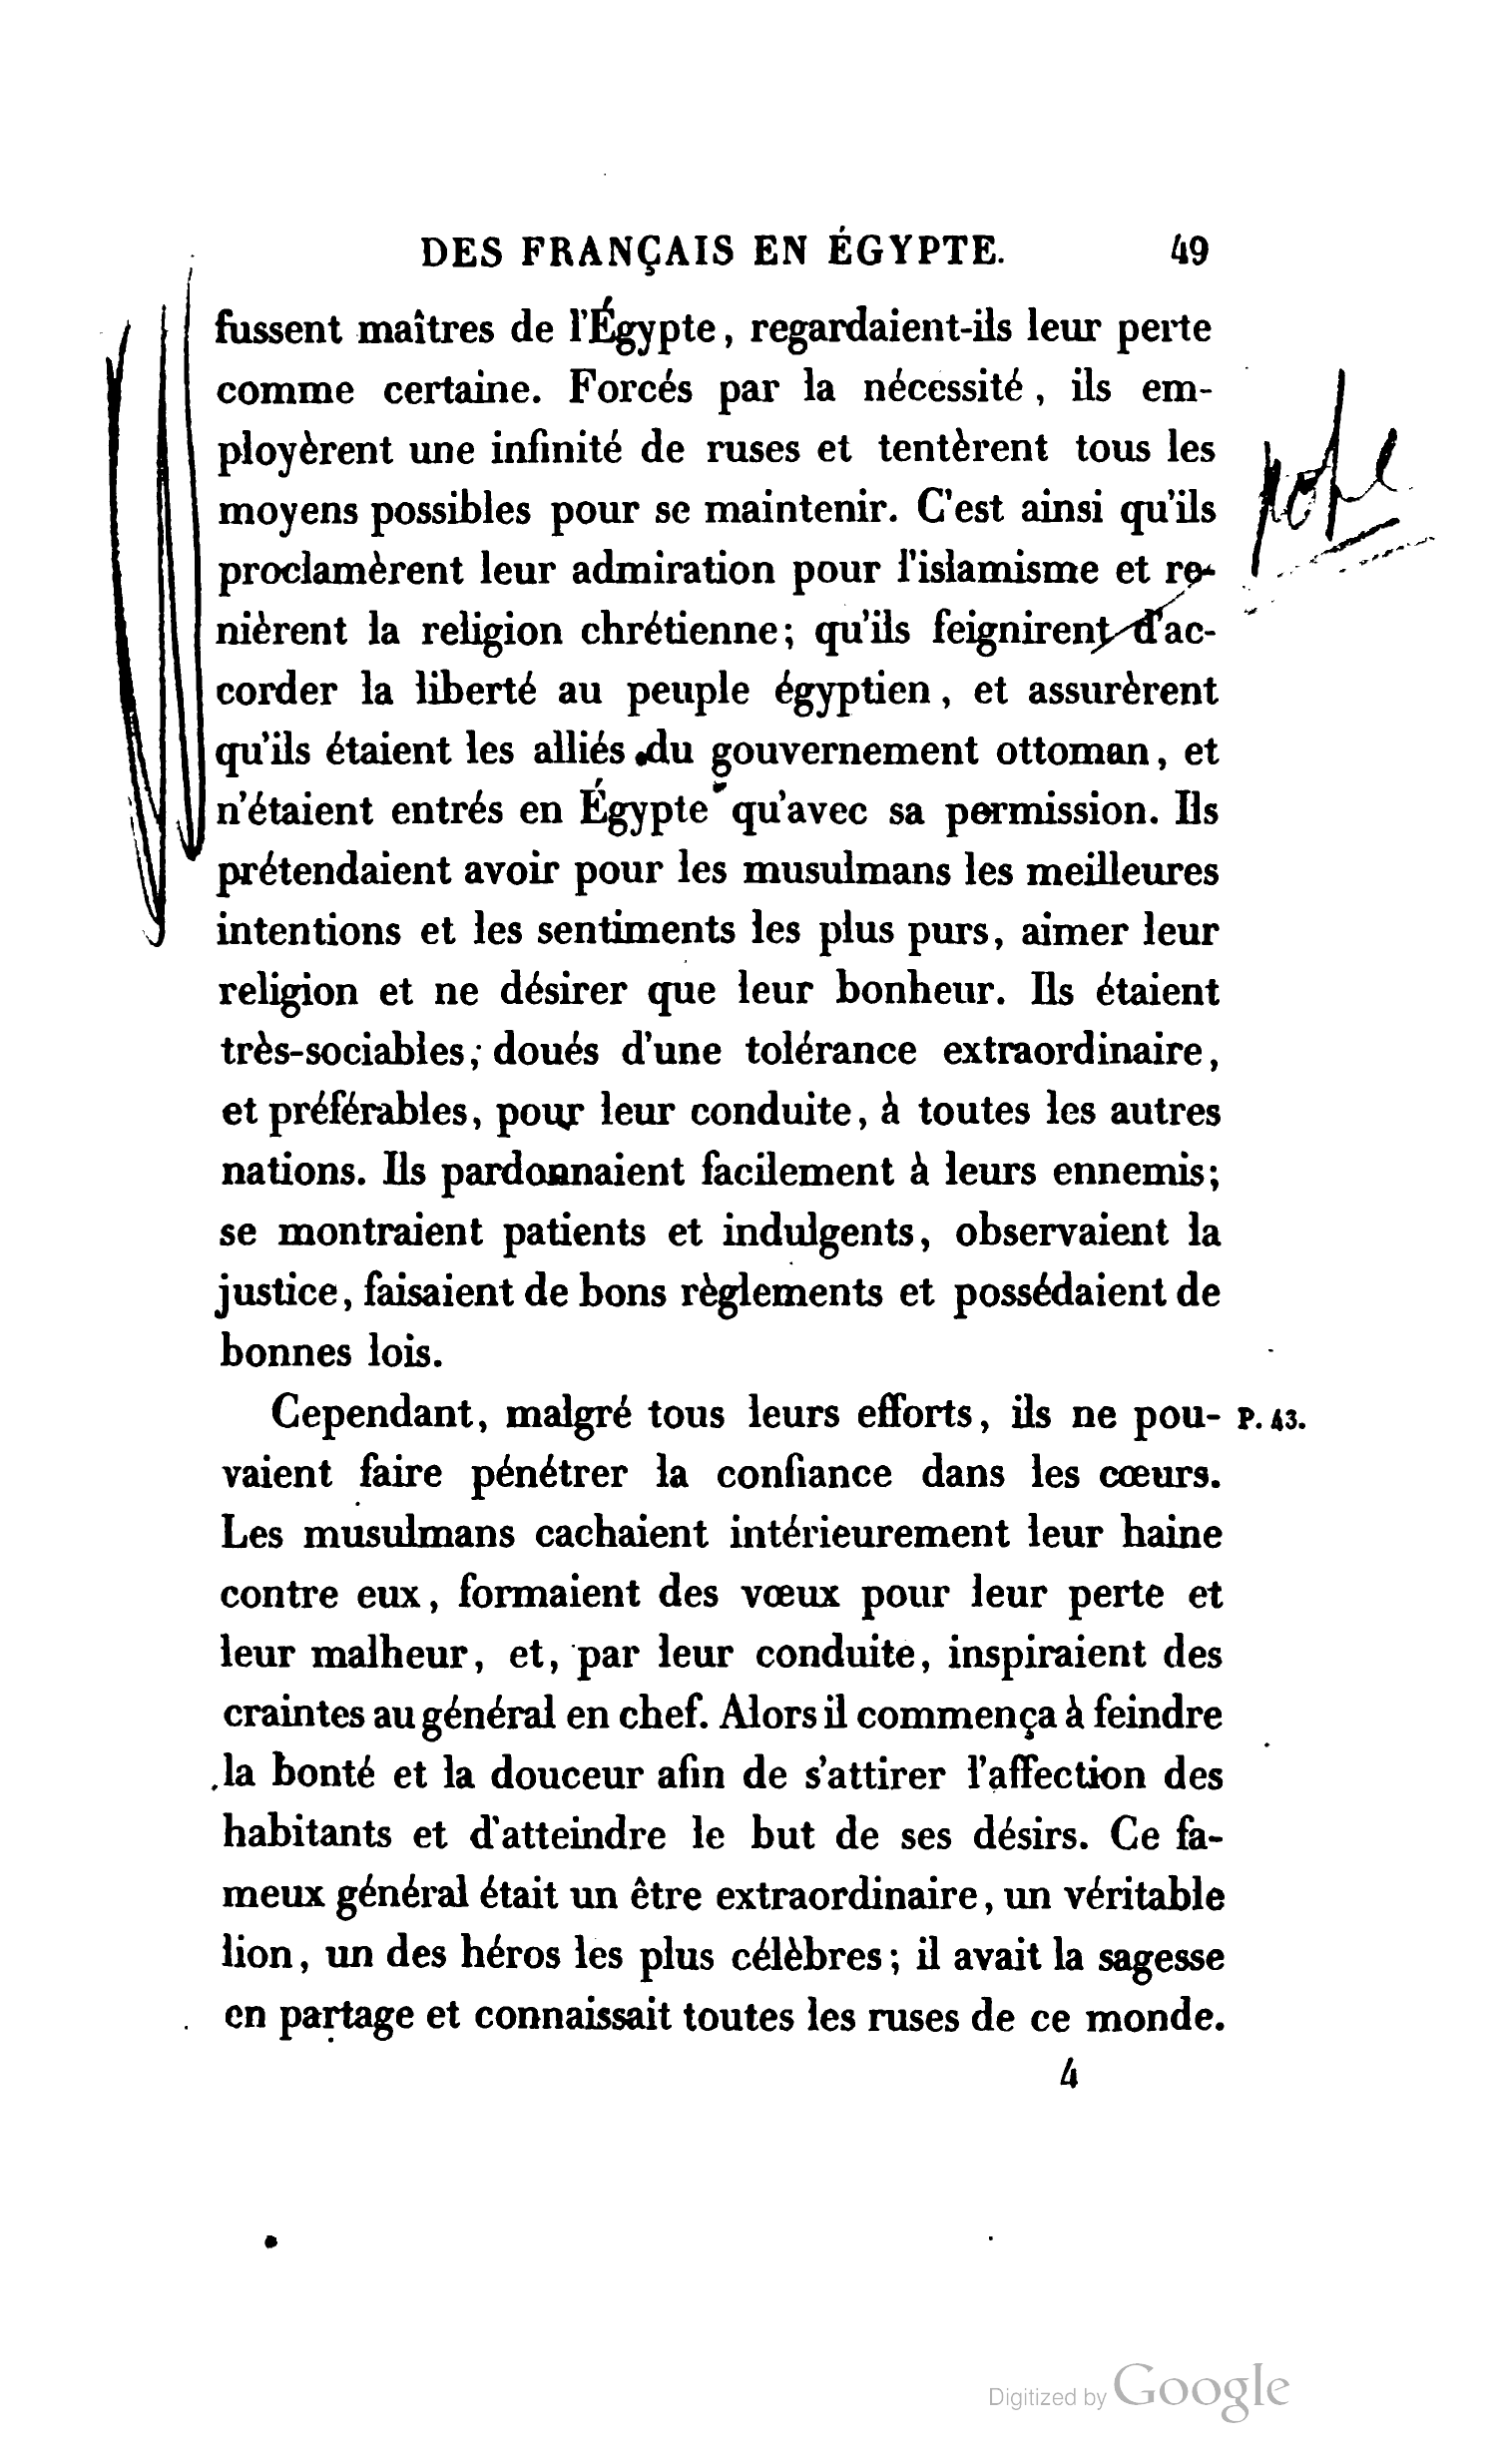 DES FRANÇAIS EN ÉGYPTE. 49
fussent maîtres de l'Égypte, regardaient-ils leur perte
comme certaine. Forcés par la nécessité, ils em-
ployèrent une infinité de ruses et tentèrent tous les
moyens possibles pour se maintenir. C'est ainsi qu'ils
proclamèrent leur admiration pour l'islamisme et re-
nièrent la religion chrétienne; qu'ils feignirent d'ac-
corder la liberté au peuple égyptien, et assurèrent
qu'ils étaient les alliés du gouvernement ottoman, et
n'étaient entrés en Égypte qu'avec sa permission. Ils
prétendaient avoir pour les musulmans les meilleures
intentions et les sentiments les plus purs, aimer leur
religion et ne désirer que leur bonheur. Ils étaient
très-sociables; doués d'une tolérance extraordinaire,
et préférables, pour leur conduite, à toutes les autres
nations. Ils pardonnaient facilement à leurs ennemis;
se montraient patients et indulgents, observaient la
justice, faisaient de bons règlements et possédaient de
bonnes lois.
Cependant, malgré tous leurs efforts, ils ne pou- P. 43.
vaient faire pénétrer la confiance dans les cœurs.
Les musulmans cachaient intérieurement leur haine
contre eux, formaient des vœux pour leur perte et
leur malheur, et, par leur conduite, inspiraient des
craintes au général en chef. Alors il commença à feindre
la bonté et la douceur afin de s'attirer l'affection des
habitants et d'atteindre le but de ses désirs. Ce fa-
meux général était un être extraordinaire, un véritable
lion, un des héros les plus célèbres; il avait la sagesse
en partage et connaissait toutes les ruses de ce monde.
4
Digitized by Google